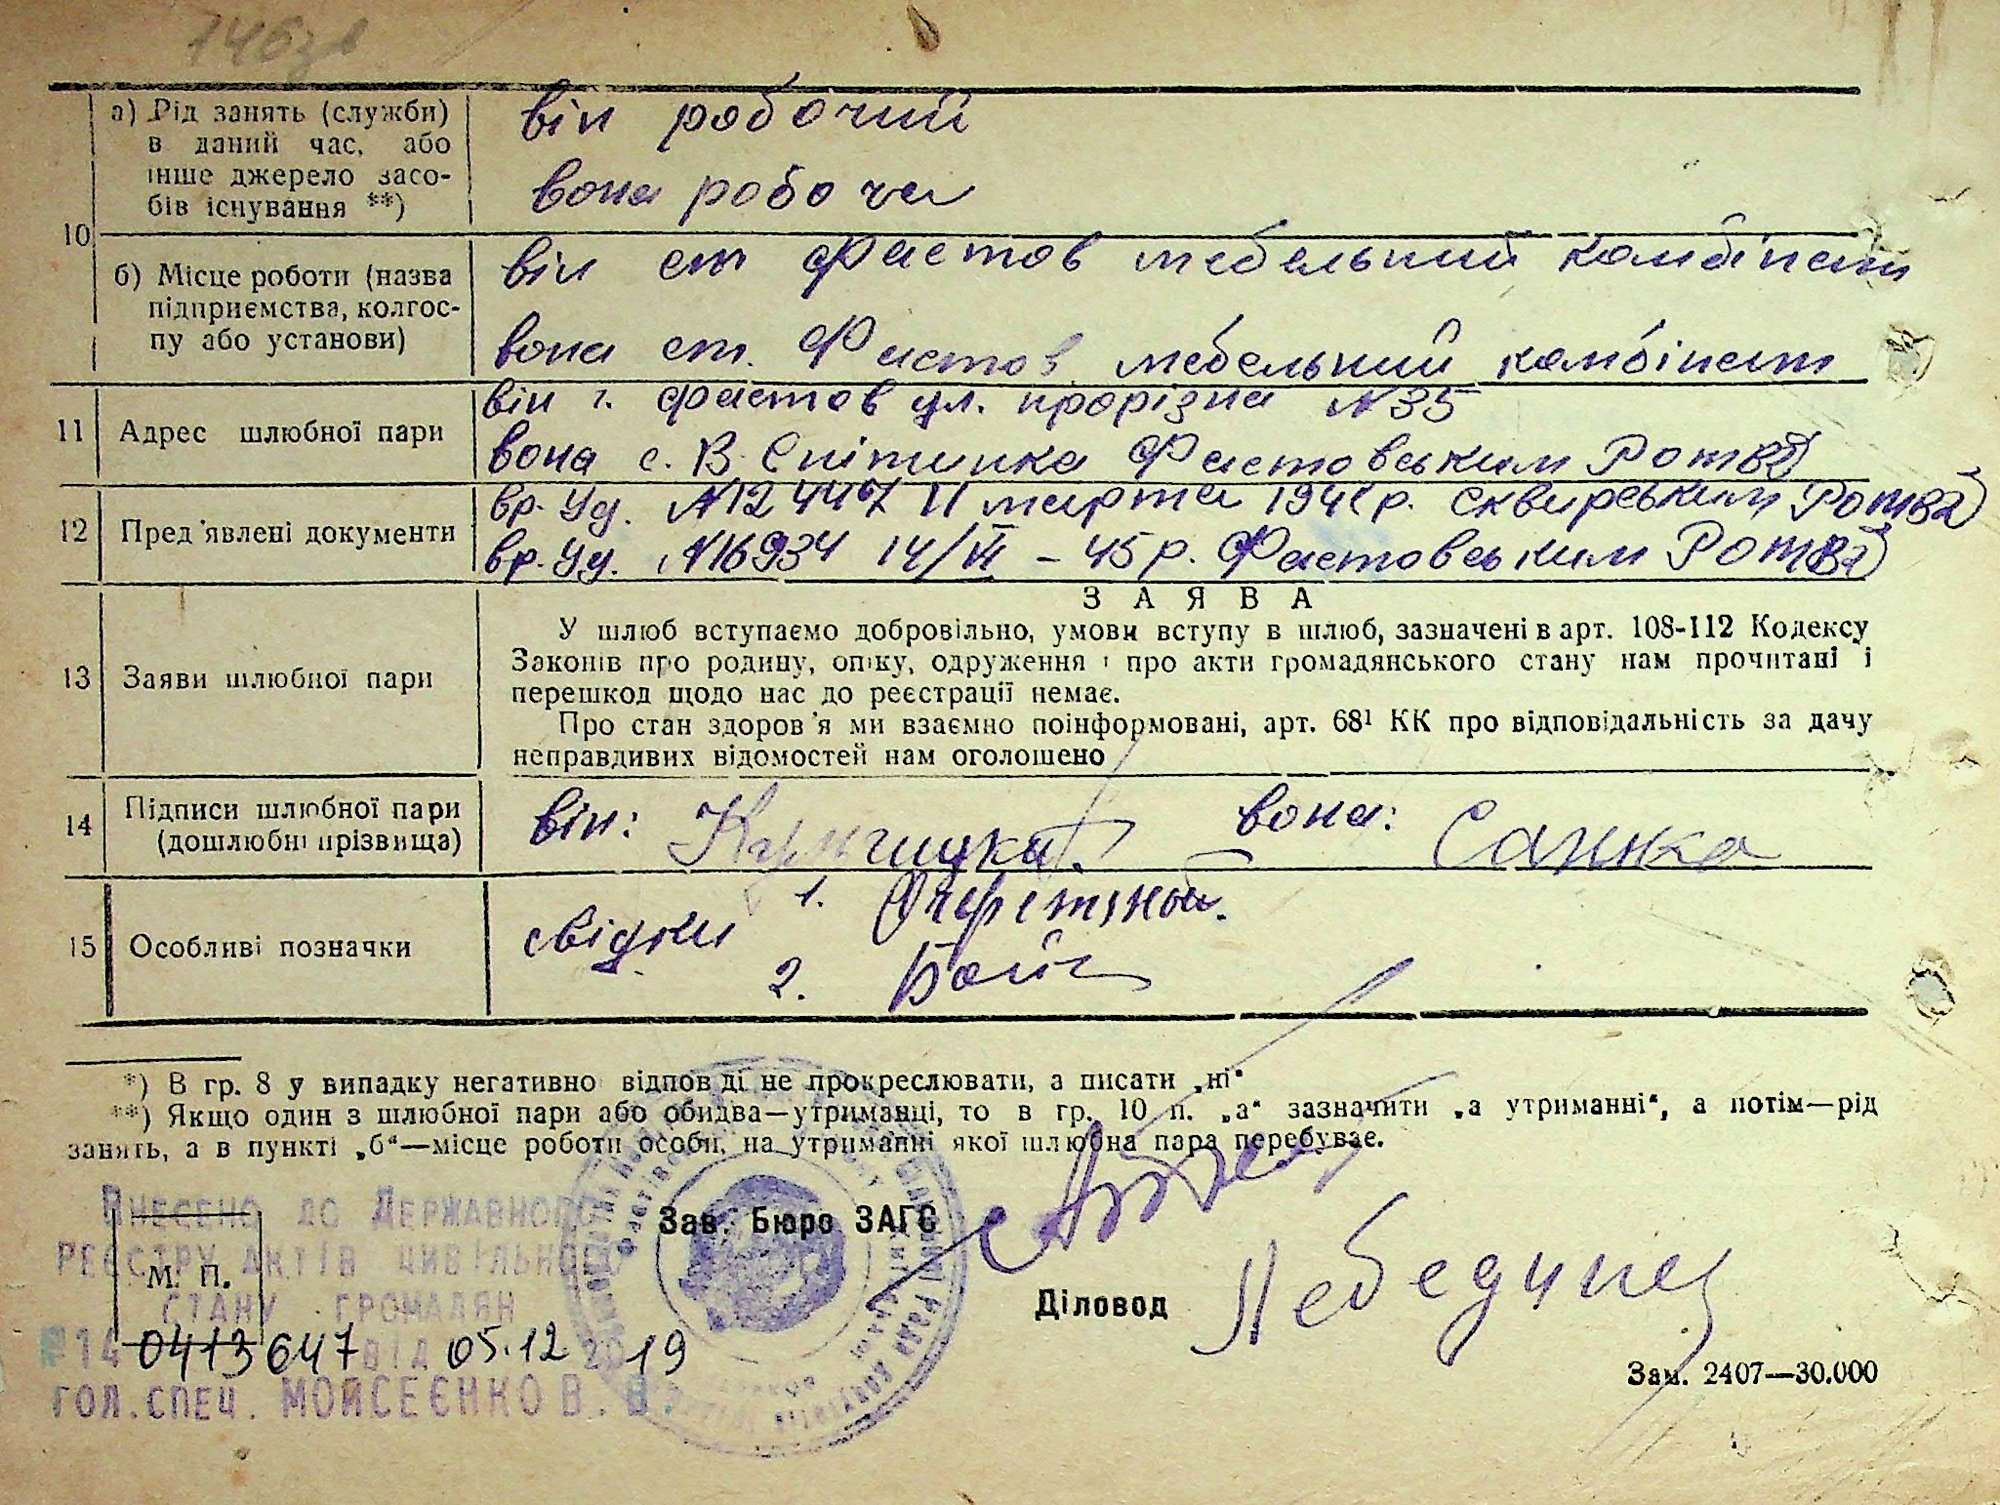 746зв
а) Рід занять (служби)
в даний час, або
інше джерело засо-
бів існування **)
він робочий
вона робоча
10
б) Місце роботи (назва
підприємства, колгос-
пу або установи)
він ст Фастов мебельний комбінат
вона ст. Фастов мебельний комбінат
11 Адрес шлюбної пари
він г. Фастов ул. прорізна №35
вона с. В. Снітинка Фастовським
12 Пред'явлені документи
вр. Уд. №12447 11 марта Сквирським
вр. Уд. №16934 14/VI – 45 р. Фастовським
13 Заяви шлюбної пари
ЗАЯВА
У шлюб вступаємо добровільно, умови вступу в шлюб, зазначені в арт. 108-112 Кодексу
Законів про родину, опіку, одруження і про акти громадянського стану нам прочитані і
перешкод щодо нас до реєстрації немає.
Про стан здоров'я ми взаємно поінформовані, арт. 68¹ КК про відповідальність за дачу
неправдивих відомостей нам оголошено
14 Підписи шлюбної пари
(дошлюбні прізвища)
він: вона:
15 Особливі позначки
свідки 1.
2.
*) В гр. 8 у випадку негативно відпов ді не прокреслювати, а писати „ні“
**) Якщо один з шлюбної пари або обидва—утриманці, то в гр. 10 п. „а“ зазначити „а утриманні“, а потім—рід
занять, а в пункті „б“—місце роботи особи, на утриманні якої шлюбна пара перебуває.
Зав. Бюро ЗАГС
Діловод Лебединец
М. П.
Внесено до Державного
реєстру актів цивільного
стану громадян
№14 0413647 від 05.12 2019
гол. спец. Мойсеєнко В. В.
Зам. 2407—30.000